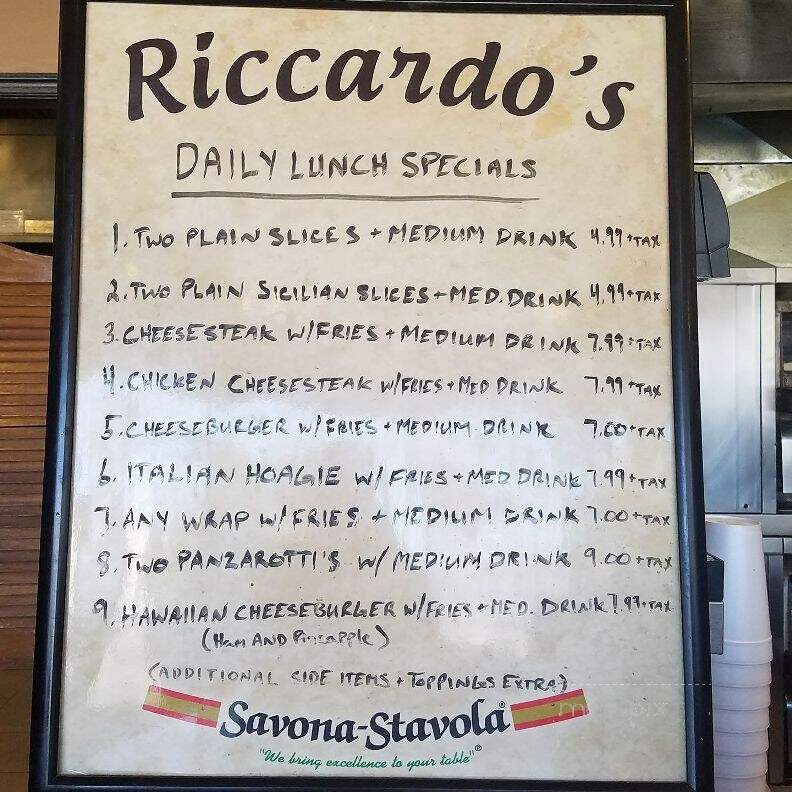 Riccardo's
DAILY LUNCH SPECIALS
1. TWO PLAIN SLICES + MEDIUM DRINK 4.99+TAX
2. TWO PLAIN SICILIAN SLICES + MED. DRINK 4.99+TAX
3. CHEESESTEAK W/FRIES + MEDIUM DRINK 7.99+TAX
4. CHICKEN CHEESESTEAK W/FRIES + MED DRINK 7.99+TAX
5. CHEESEBURGER W/FRIES + MEDIUM DRINK 7.00+TAX
6. ITALIAN HOAGIE W/ FRIES + MED DRINK 7.99+TAX
7. ANY WRAP W/FRIES + MEDIUM DRINK 7.00+TAX
8. TWO PANZAROTTI'S W/ MEDIUM DRINK 9.00+TAX
9. HAWAIIAN CHEESEBURGER W/FRIES + MED. DRINK 7.97+TAX
(HAM AND Pineapple)
(ADDITIONAL SIDE ITEMS + TOPPINGS EXTRA)
Savona-Stavola®
"We bring excellence to your table"®